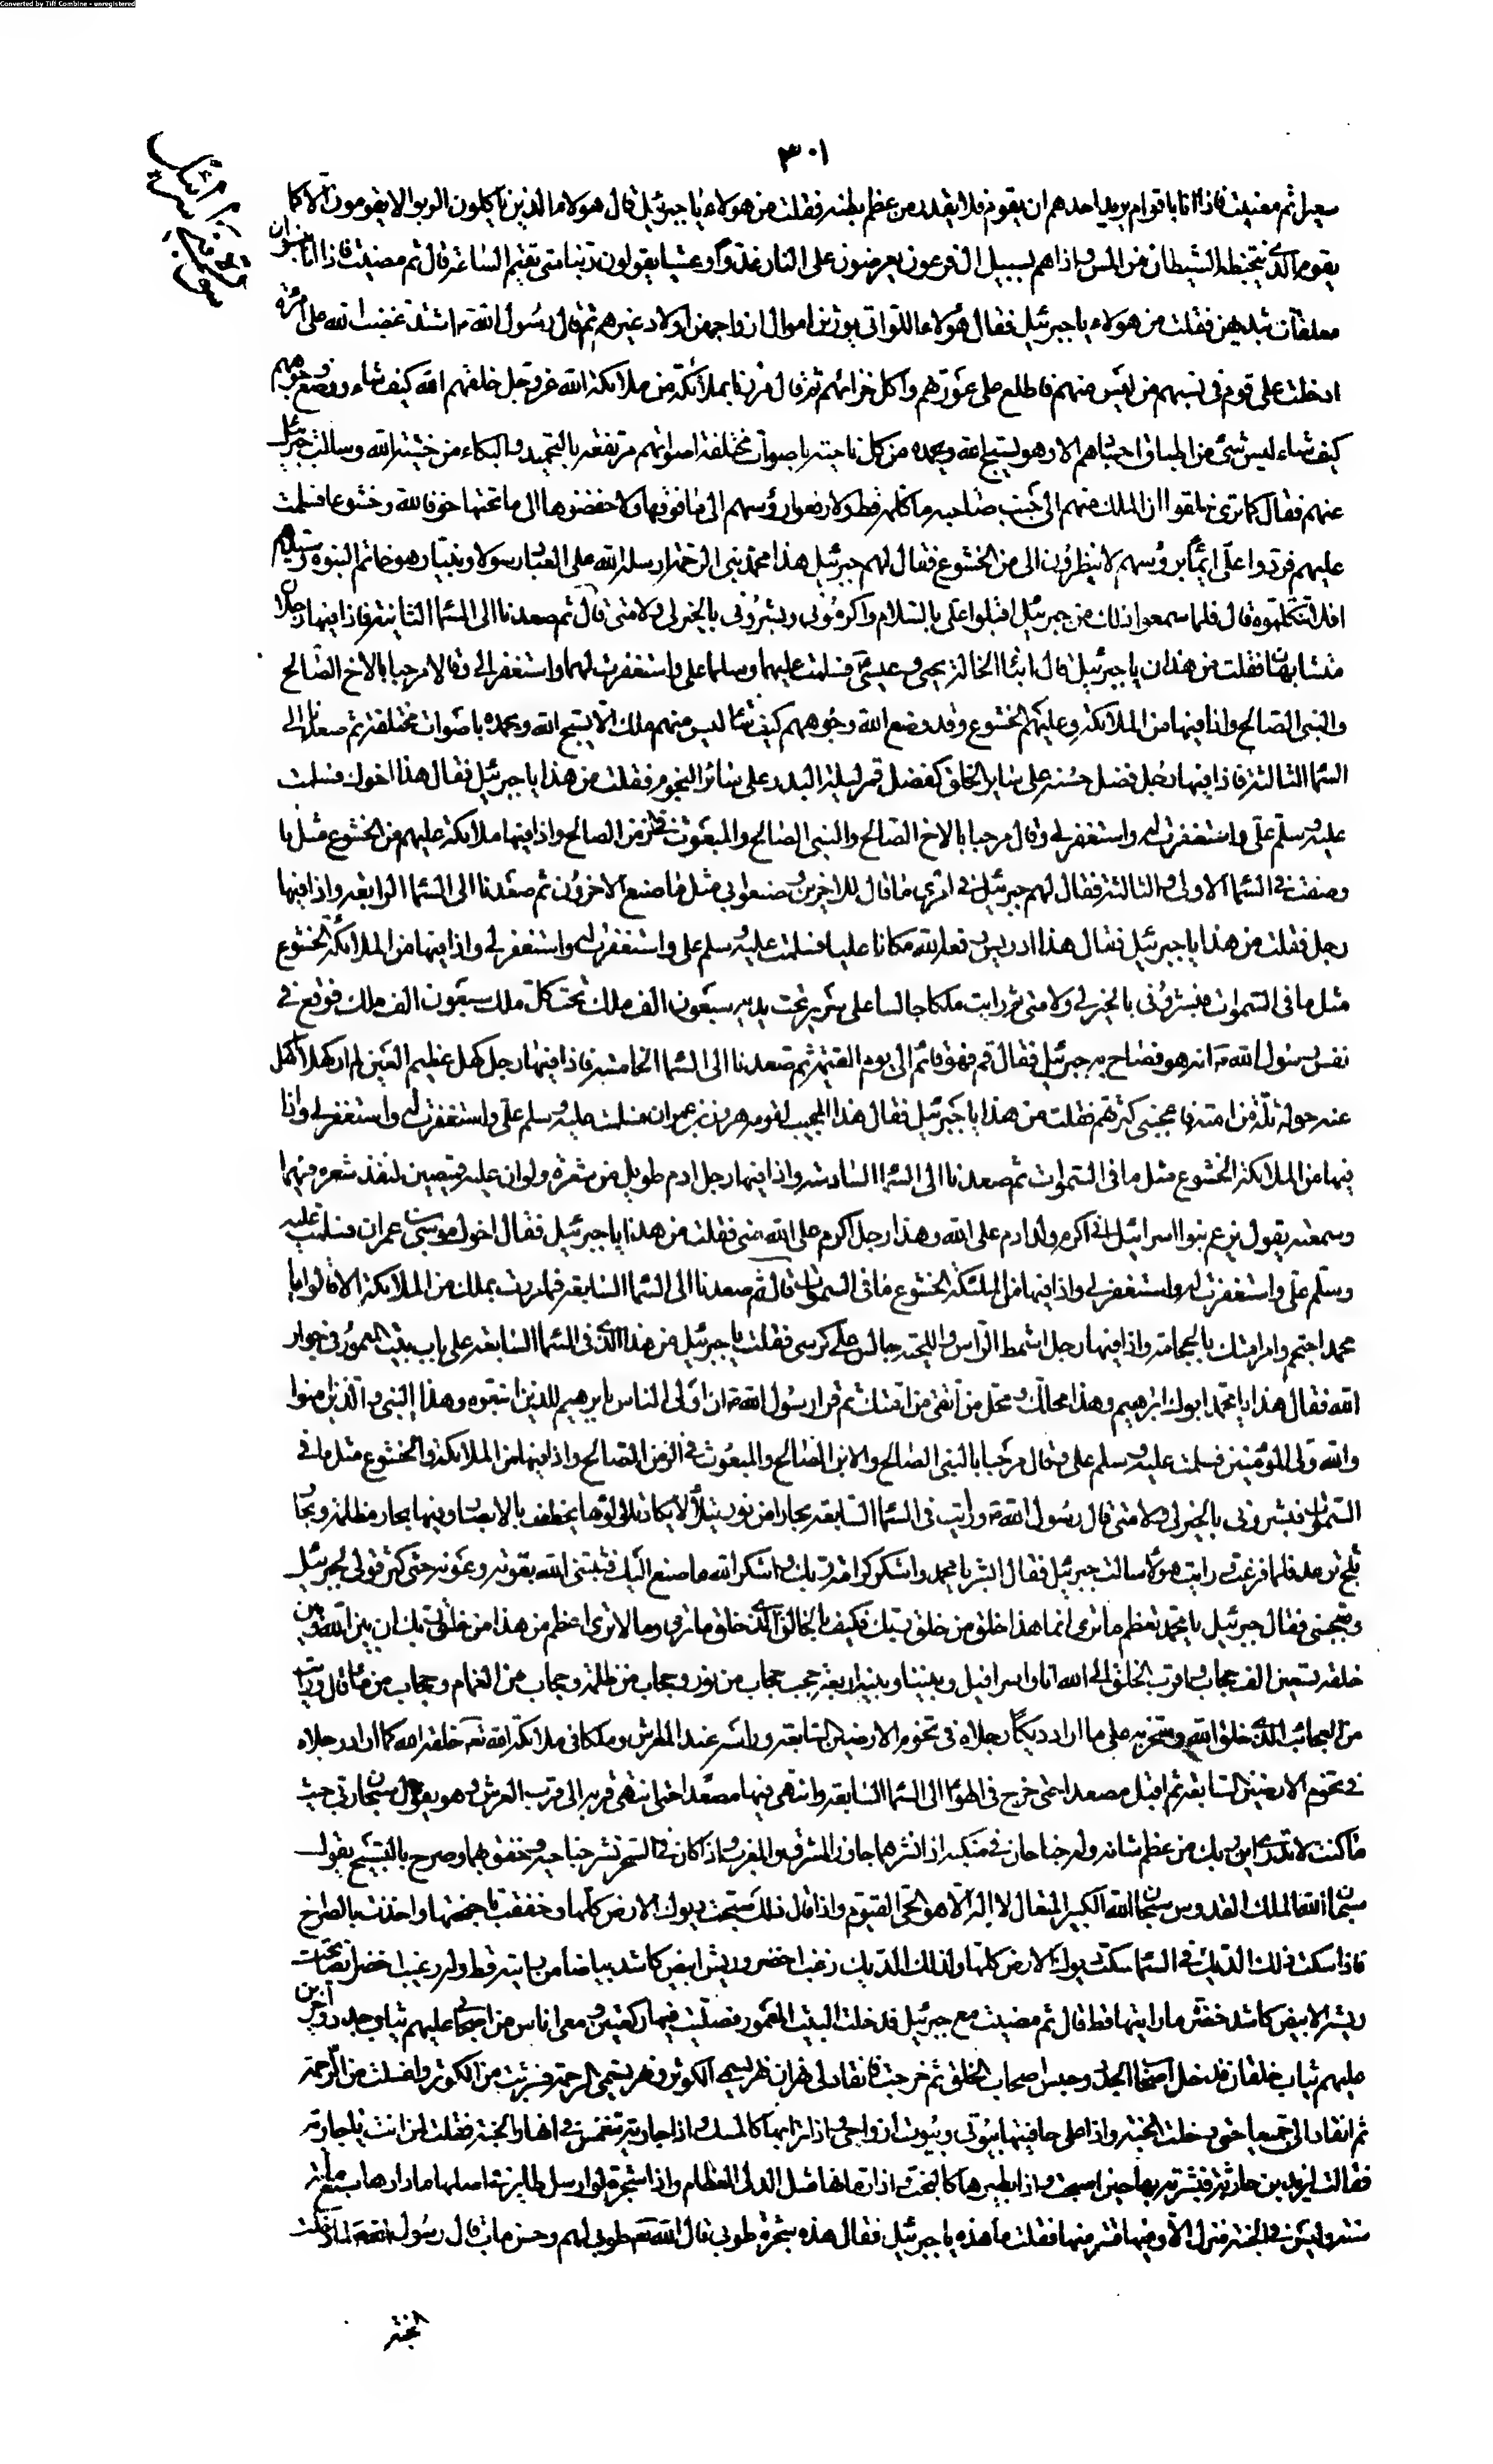 Converted by Tiff Combine - unregistered
٣٠١
سعيرا ثم مضيت فاذا انا باقوام يريد احدهم ان يقوم فلا يقدر من عظم بطنه فقلت من هولاء يا جبرئيل قال هولاء الذين ياكلون الربوا لا يقومون الا كما
يقوم الذى يتخبطه الشيطان من المس واذا هم بسبيل ال فرعون يعرضون على النار غدوا وعشيا يقولون ربنا متى تقيم الساعة قال ثم مضيت فاذا انا بنسوان
معلقات بثديهن فقلت من هولاء يا جبرئيل فقال هؤلاء اللواتى يورثن اموال ازواجهن اولاد غيرهم ثم قال رسول الله ص اشتد غضب الله على امرئة
ادخلت على قوم فى نسبهم من ليس منهم فاطلع على عورتهم واكل خزائنهم ثم قال مررنا بملائكة من ملائكة الله عز وجل خلقهم الله كيف شاء ووضع وجوههم
كيف شاء ليس شئ من اطباق اجسادهم الا وهو يسبح الله ويحمده من كل ناحية باصوات مختلفة اصواتهم مرتفعة بالتحميد والبكاء من خشية الله وسالت جبرئيل
عنهم فقال كما ترى خلقوا ان الملك منهم الى جنب صاحبه ما كلمه قط ولا رفعوا رؤسهم الى ما فوقها ولا خفضوها الى ما تحتها خوفا لله وخشوعا فسلمت
عليهم فردوا على ايماء برؤسهم لا ينظرون الى من الخشوع فقال لهم جبرئيل هذا محمد نبى الرحمة ارسله الله على العباد رسولا ونبيا وهو خاتم النبوة وسيدهم
افلا تكلموه قال فلما سمعوا ذلك من جبرئيل اقبلوا على بالسلام واكرمونى وبشرونى بالخير لى ولامتى قال ثم صعدنا الى السماء الثانية فاذا فيها رجلان
متشابهان فقلت من هذان يا جبرئيل قال ابنا الخالة يحيى وعيسى فسلمت عليهما وسلما على واستغفرت لهما واستغفرا لى وقالا مرحبا بالاخ الصالح
والنبى الصالح واذا فيها من الملائكة وعليهم الخشوع وقد وضع الله وجوههم كيف شاء ليس منهم ملك الا يسبح الله ويحمده باصوات مختلفة ثم صعدنا الى
السماء الثالثة فاذا فيها رجل فضل حسنه على سائر الخلق كفضل قمر ليلة البدر على سائر النجوم فقلت من هذا يا جبرئيل فقال هذا اخوك فسلمت
عليه وسلم على واستغفرت له واستغفر لى وقال مرحبا بالاخ الصالح والنبى الصالح والمبعوث فى الزمن الصالح واذا فيها ملائكة عليهم من الخشوع مثل ما
وصفت فى السماء الاولى والثالثة فقال لهم جبرئيل فى امرى ما قال للاخرين وصنعوا بى مثل ما صنع الاخرون ثم صعدنا الى السماء الرابعة واذا فيها
رجل فقلت من هذا يا جبرئيل فقال هذا ادريس رفعه الله مكانا عليا فسلمت عليه وسلم على واستغفرت له واستغفر لى واذا فيها من الملائكة الخشوع
مثل ما فى السموات فبشرونى بالخير لى ولامتى ثم رايت ملكا جالسا على سرير تحت يديه سبعون الف ملك تحت كل ملك سبعون الف ملك فوقع فى
نفس رسول الله ص انه هو فصاح به جبرئيل فقال قم فهو قائم الى يوم القيمة ثم صعدنا الى السماء الخامسة فاذا فيها رجل كهل عظيم العين لم ار كهلا اعظم
عنه حوله ثلة من امته فاعجبنى كثرتهم فقلت من هذا يا جبرئيل فقال هذا المجيب لقومه هرون بن عمران فسلمت عليه وسلم على واستغفرت له واستغفر لى واذا
فيها من الملائكة الخشوع مثل ما فى السموات ثم صعدنا الى السماء السادسة واذا فيها رجل ادم طويل من شعره ولو ان عليه قميصين لنفذ شعره فيهما
وسمعته يقول يزعم بنوا اسرائيل انى اكرم ولد ادم على الله وهذا رجل اكرم على الله منى فقلت من هذا يا جبرئيل فقال اخوك موسى بن عمران فسلمت عليه
وسلم على واستغفرت له واستغفر لى واذا فيها من الملئكة الخشوع ما فى السموات قال ثم صعدنا الى السماء السابعة فما مررت بملك من الملائكة الا قالوا يا
محمد احتجم وامر امتك بالحجامة واذا فيها رجل اشمط الراس واللحية جالس على كرسى فقلت يا جبرئيل من هذا الذى فى السماء السابعة على باب بيت المعمور فى جوار
الله فقال هذا يا محمد ابوك ابرهيم وهذا محلك ومحل من اتقى من امتك ثم قرا رسول الله ص ان اولى الناس بابرهيم للذين اتبعوه وهذا النبى والذين امنوا
والله ولى المؤمنين فسلمت عليه وسلم على وقال مرحبا بالنبى الصالح والابن الصالح والمبعوث فى الزمن الصالح واذا فيها من الملائكة والخشوع مثل ما فى
السموات فبشرونى بالخير لى ولامتى قال رسول الله ص ورايت فى السماء السابعة بحارا من نور يتلألا يكاد تلالؤها يخطف بالابصار وفيها بحار مظلمة وبحار
ثلج ترعد فلما فزعت ورايت هولا سالت جبرئيل فقال ابشر يا محمد واشكر كرامة ربك واشكر الله ما صنع اليك فثبتنى الله بقوته وعونه حتى كثر قولى لجبرئيل
وتعجبى فقال جبرئيل يا محمد تعظم ما ترى انما هذا خلق من خلق ربك فكيف بالخالق الذى خلق ما ترى وما لا ترى اعظم من هذا من خلق ربك ان بين الله وبين
خلقه تسعين الف حجاب واقرب الخلق الى الله انا واسرافيل وبيننا وبينه اربعة حجب حجاب من نور وحجاب من ظلمة وحجاب من الغمام وحجاب من ماء قال ورايت
من العجائب الذى خلق الله وسخر به على ما اراد ديكا رجلاه فى تخوم الارضين السابعة وراسه عند العرش وملكا فى ملائكة الله تعه خلقه الله كما اراد رجلاه
فى تخوم الارضين السابعة ثم اقبل مصعدا حتى خرج فى الهواء الى السماء السابعة وانتهى فيها مصعدا حتى انتهى قرنه الى قرب العرش وهو يقول سبحان ربى حيث
ما كنت لا تدرى اين ربك من عظم شانه وله جناحان فى منكبيه اذا نشرهما جاوز المشرق والمغرب واذا كان فى السحر نشر جناحيه وخفق بهما وصرح بالتسبيح يقول
سبحان الله الملك القدوس سبحان الله الكبير المتعال لا اله الا هو الحى القيوم واذا قال ذلك سبحت ديوك الارض كلها وخفقت باجنحتها واخذت بالصراخ
فاذا سكت ذلك الديك فى السماء سكت ديوك الارض كلها ولذلك الديك زغب اخضر وريش ابيض كاشد بياضا ما رايته قط وله زغب اخضر ايضا تحت
ريشه الابيض كاشد خضرة ما رايتها قط قال ثم مضيت مع جبرئيل فدخلت البيت المعمور فصليت فيها ركعتين ومعى اناس من اصحابى عليهم ثياب جدد واخرين
عليهم ثياب خلقان فدخل اصحاب الجدد وحبس اصحاب الخلق ثم خرجت فانقاد لى نهران نهر يسمى الكوثر ونهر يسمى الرحمة فشربت من الكوثر واغتسلت من الرحمة
ثم انقادا لى جميعا حتى دخلت الجنة واذا على حافيتها بيوتى وبيوت ازواجى واذا ترابها كالمسك واذا جارية تنغمس فى انهار الجنة فقلت لمن انت يا جارية
فقالت لزيد بن حارثة فبشرته بها حين اصبحت واذا بطيرها كالبخت واذا رمانها مثل الدلى العظام واذا شجرة لو ارسل طاير فى اصلها ما دارها سبعمائة
سنة وليس فى الجنة منزل الا وفيها قتر منها فقلت ما هذه يا جبرئيل فقال هذه شجرة طوبى قال الله تعه طوبى لهم وحسن ماب قال رسول الله ص فلما دخلت
الجنة